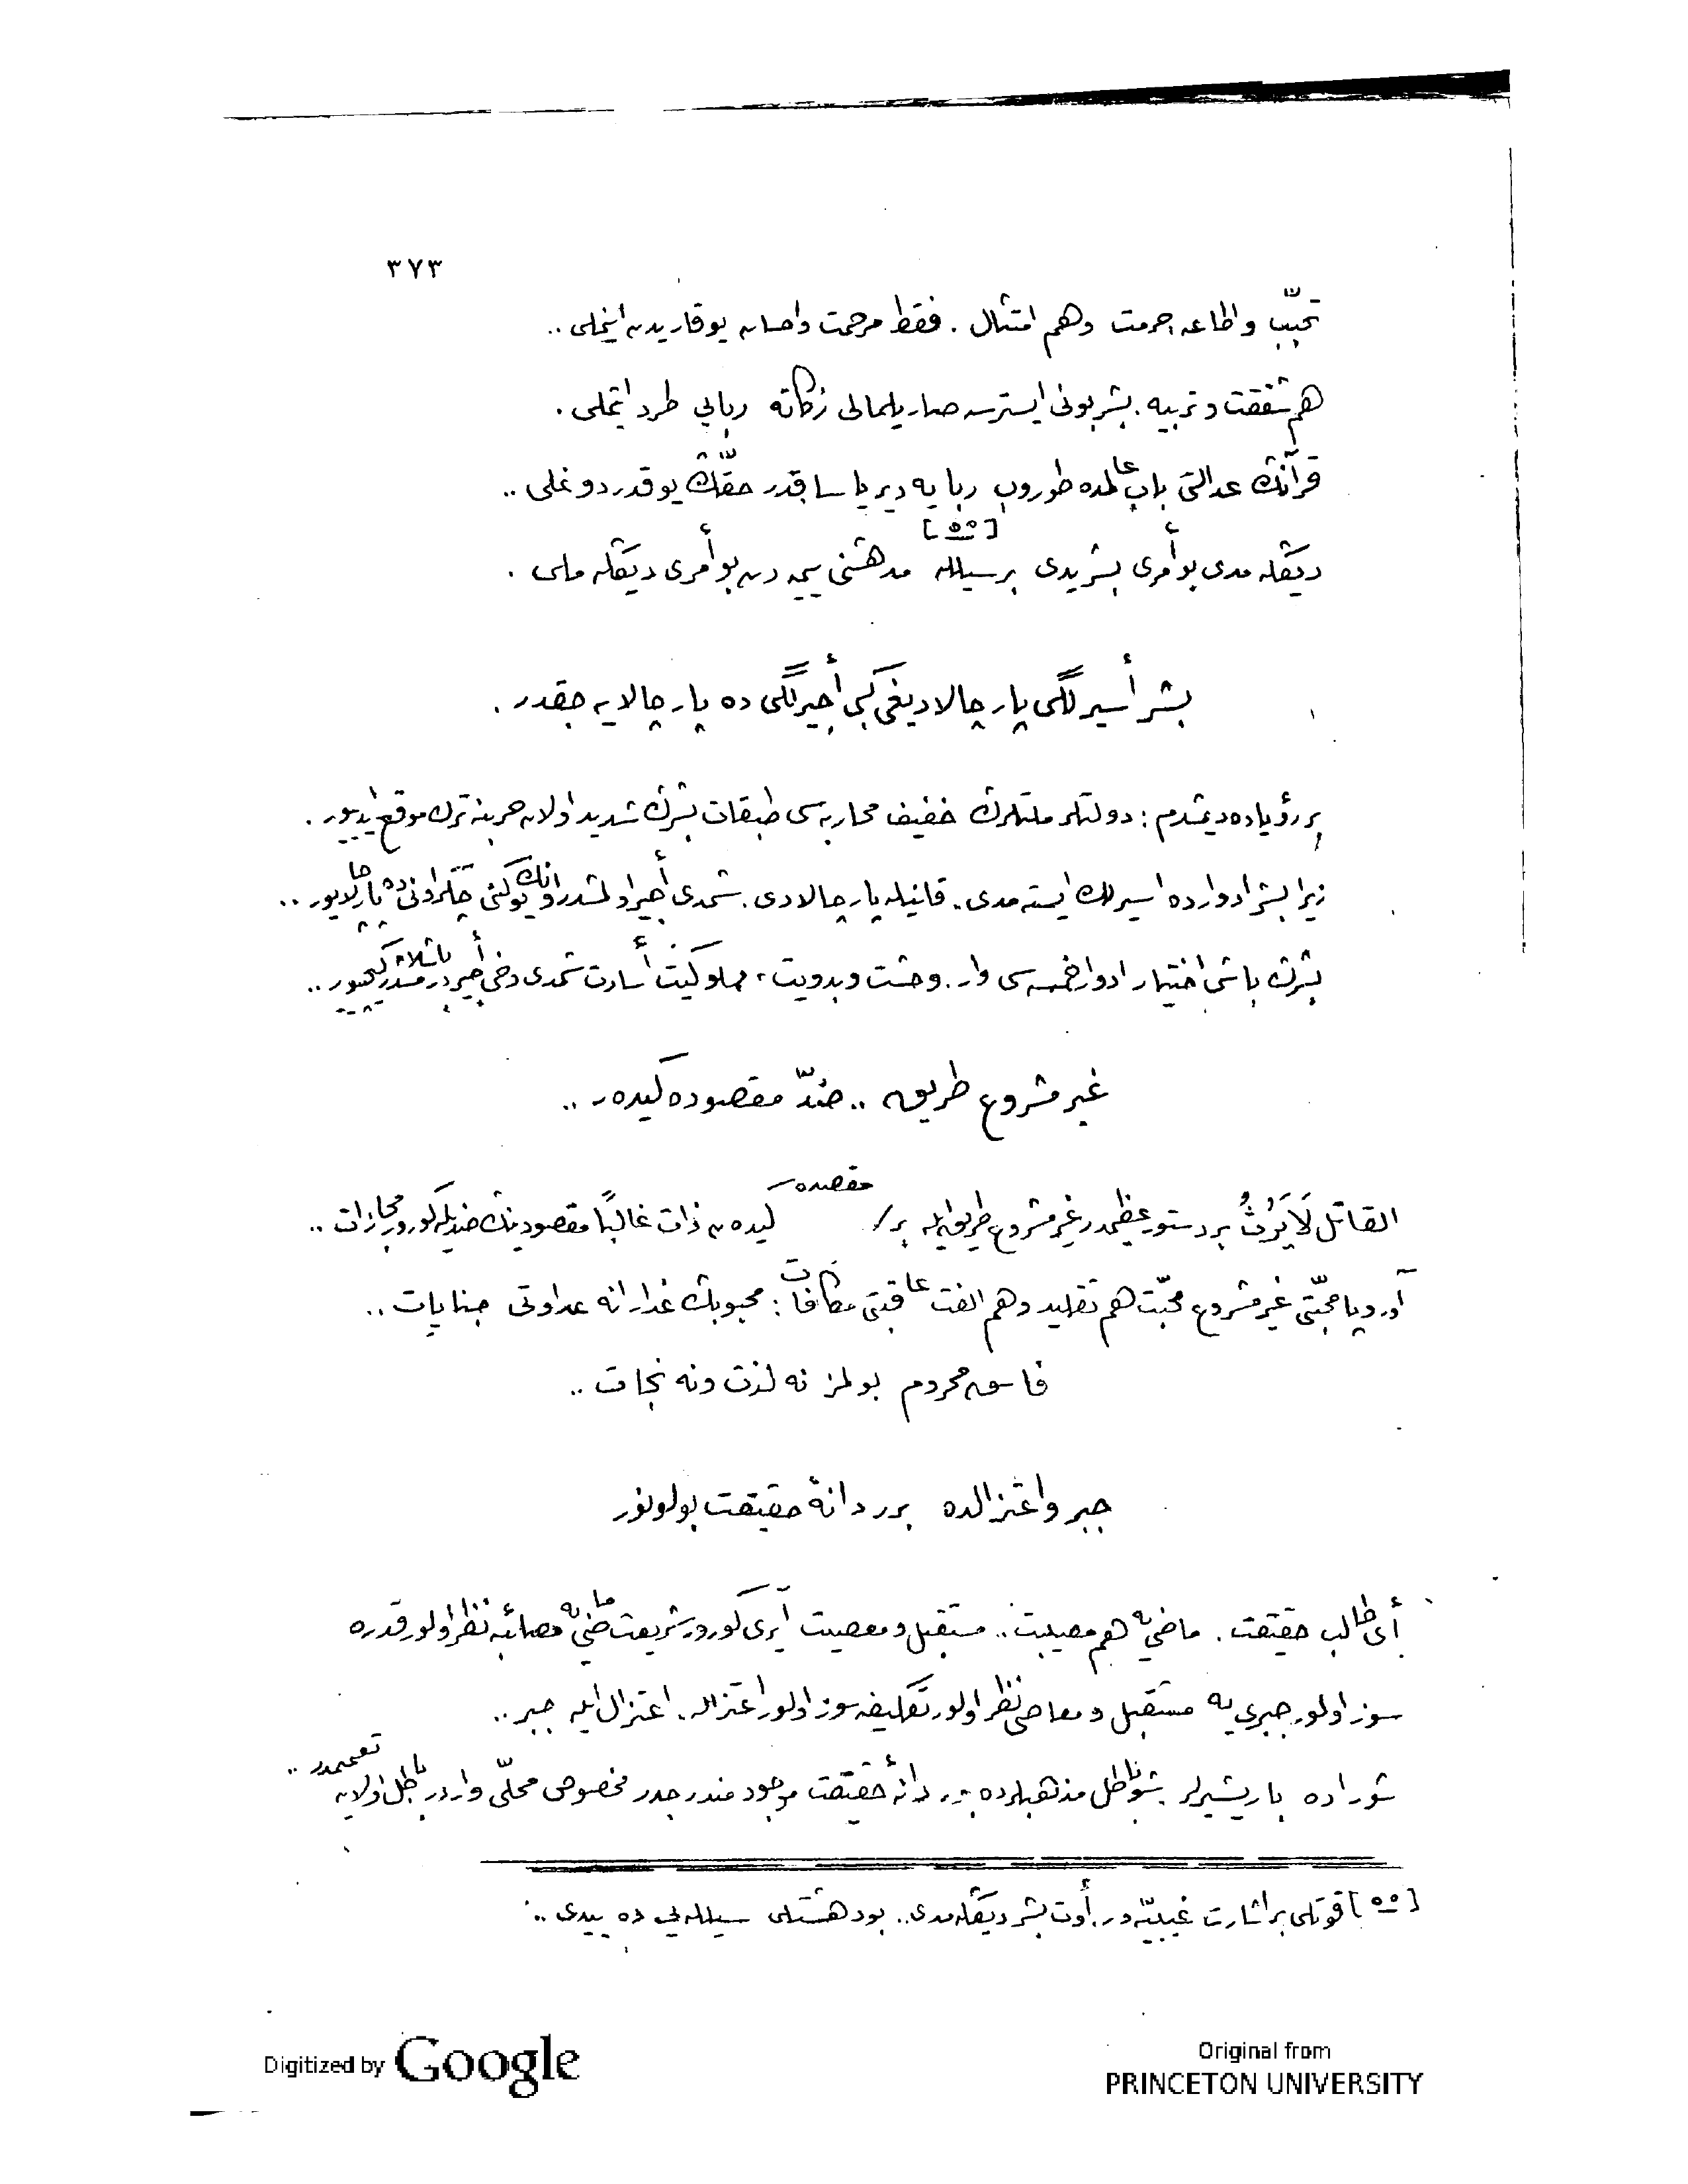 ٣٧٣
تحبّب واطاعه، حرمت وهم امتثال . فقط مرحمت واحسان يوقاريدن اينملى ..
هم شفقت و تربيه . بشر بونى ايسترسه صاريلمالى زكاته ربايى طرد ايتملى .
قرآنڭ عدالتى باب عالمده طوروب ربايه دير ياساقدر حقّڭ يوقدر دونملى ..
[٥٥]
ديڭله مدى بو أمرى بشر يدى بر سيلله مدهشنى ييمه دن بو أمرى ديڭله ملى .
بشر أسيرلگى پارچالاديغى كبى أجيرلگى ده پارچالايه جقدر .
بر رؤياده ديمشدم : دولتلر ملتلرڭ خفيف محاربه سى طبقات بشرڭ شديد اولان حربنه ترك موقع ايدييور .
زيرا بشر ادوارده اسيرلك ايسته مدى . قانيله پارچالادى . شمدى أجير اولمشدر اونڭ يوكنى چكر اونى ده پارچالايور ..
بشرڭ باشى اختيار ادوار خمسه سى وار . وحشت وبدويت ، مملوكيت أسارت شمدى دخى أجيردر باشلامشدر كچييور ..
غير مشروع طريق .. ضدّ مقصوده كيدر ..
القاتل لَا يَرِثُ بر دستور عظيمدر غير مشروع طريق ايله بر مقصده كيدن ذات غالبًا مقصودينڭ ضديله كورور مجازات ..
آوروپا محبّتى غير مشروع محبّت هم تقليد وهم الفت عاقبتى مكافات : محبوبڭ غدارانه عداوتى جنايات ..
فاسق محروم بولمز نه لذت ونه نجات ..
جبر واعتزالده برر دانهٔ حقيقت بولونور
أى طالب حقيقت . ماضى يه هم مصيبت .. مستقبل و معصيت آيرى كورور شريعت ماضى يه مصائبه نظر اولور قدره
سوز اولور جبرى يه مستقبل و معاصى نظر اولور تكليفه سوز اولور اعتزاله . اعتزال ايله جبر ..
شوراده باريشيرلر . شو باطل مذهبلرده برر دانهٔ حقيقت موجود مندرجدر مخصوص محلّى واردر باطل اولان تعميمدر ..
[٥٥] قوتلى بر اشارت غيبيّه در . أوت بشر ديڭله مدى .. بو دهشتلى سيلله يى ده ييدى ..
Digitized by Google
Original from
PRINCETON UNIVERSITY